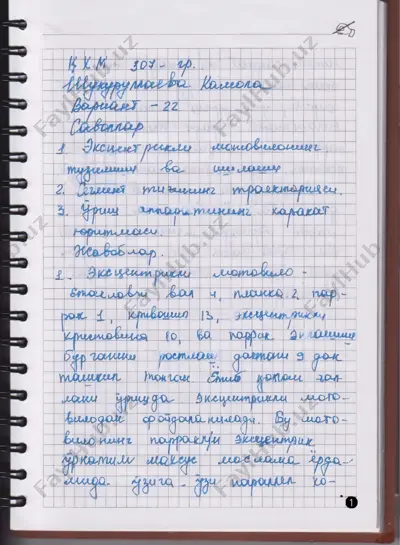 ҚХМ 307-гр.
Шукуруллаева Камола
Вариант - 22
Саволлар
1. Эксцентрикли мотовилонинг
тузилиши ва ишлаши
2. Элемент тигининг траекторияси.
3. Ўриш аппаратининг харакат
юритмаси.
Жавоблар.
1. Эксцентрикли мотовило -
вал 4, планка 2, пар-
рак 1, кривошип 13, эксцентрикли
10, ва паррак энгашиш
бурчагини ростлаш дастаси 9 дан
ташкил топган Ётиб қолган ғал-
лани ўришда эксцентрикли мото-
вилодан фойдаланилади. Бу мото-
вилонинг парраклри эксцентрик
ўрнатилиб махсус мослама ёрда-
мида ўзига - ўзи параллел хо-
1
FaylHub.uz